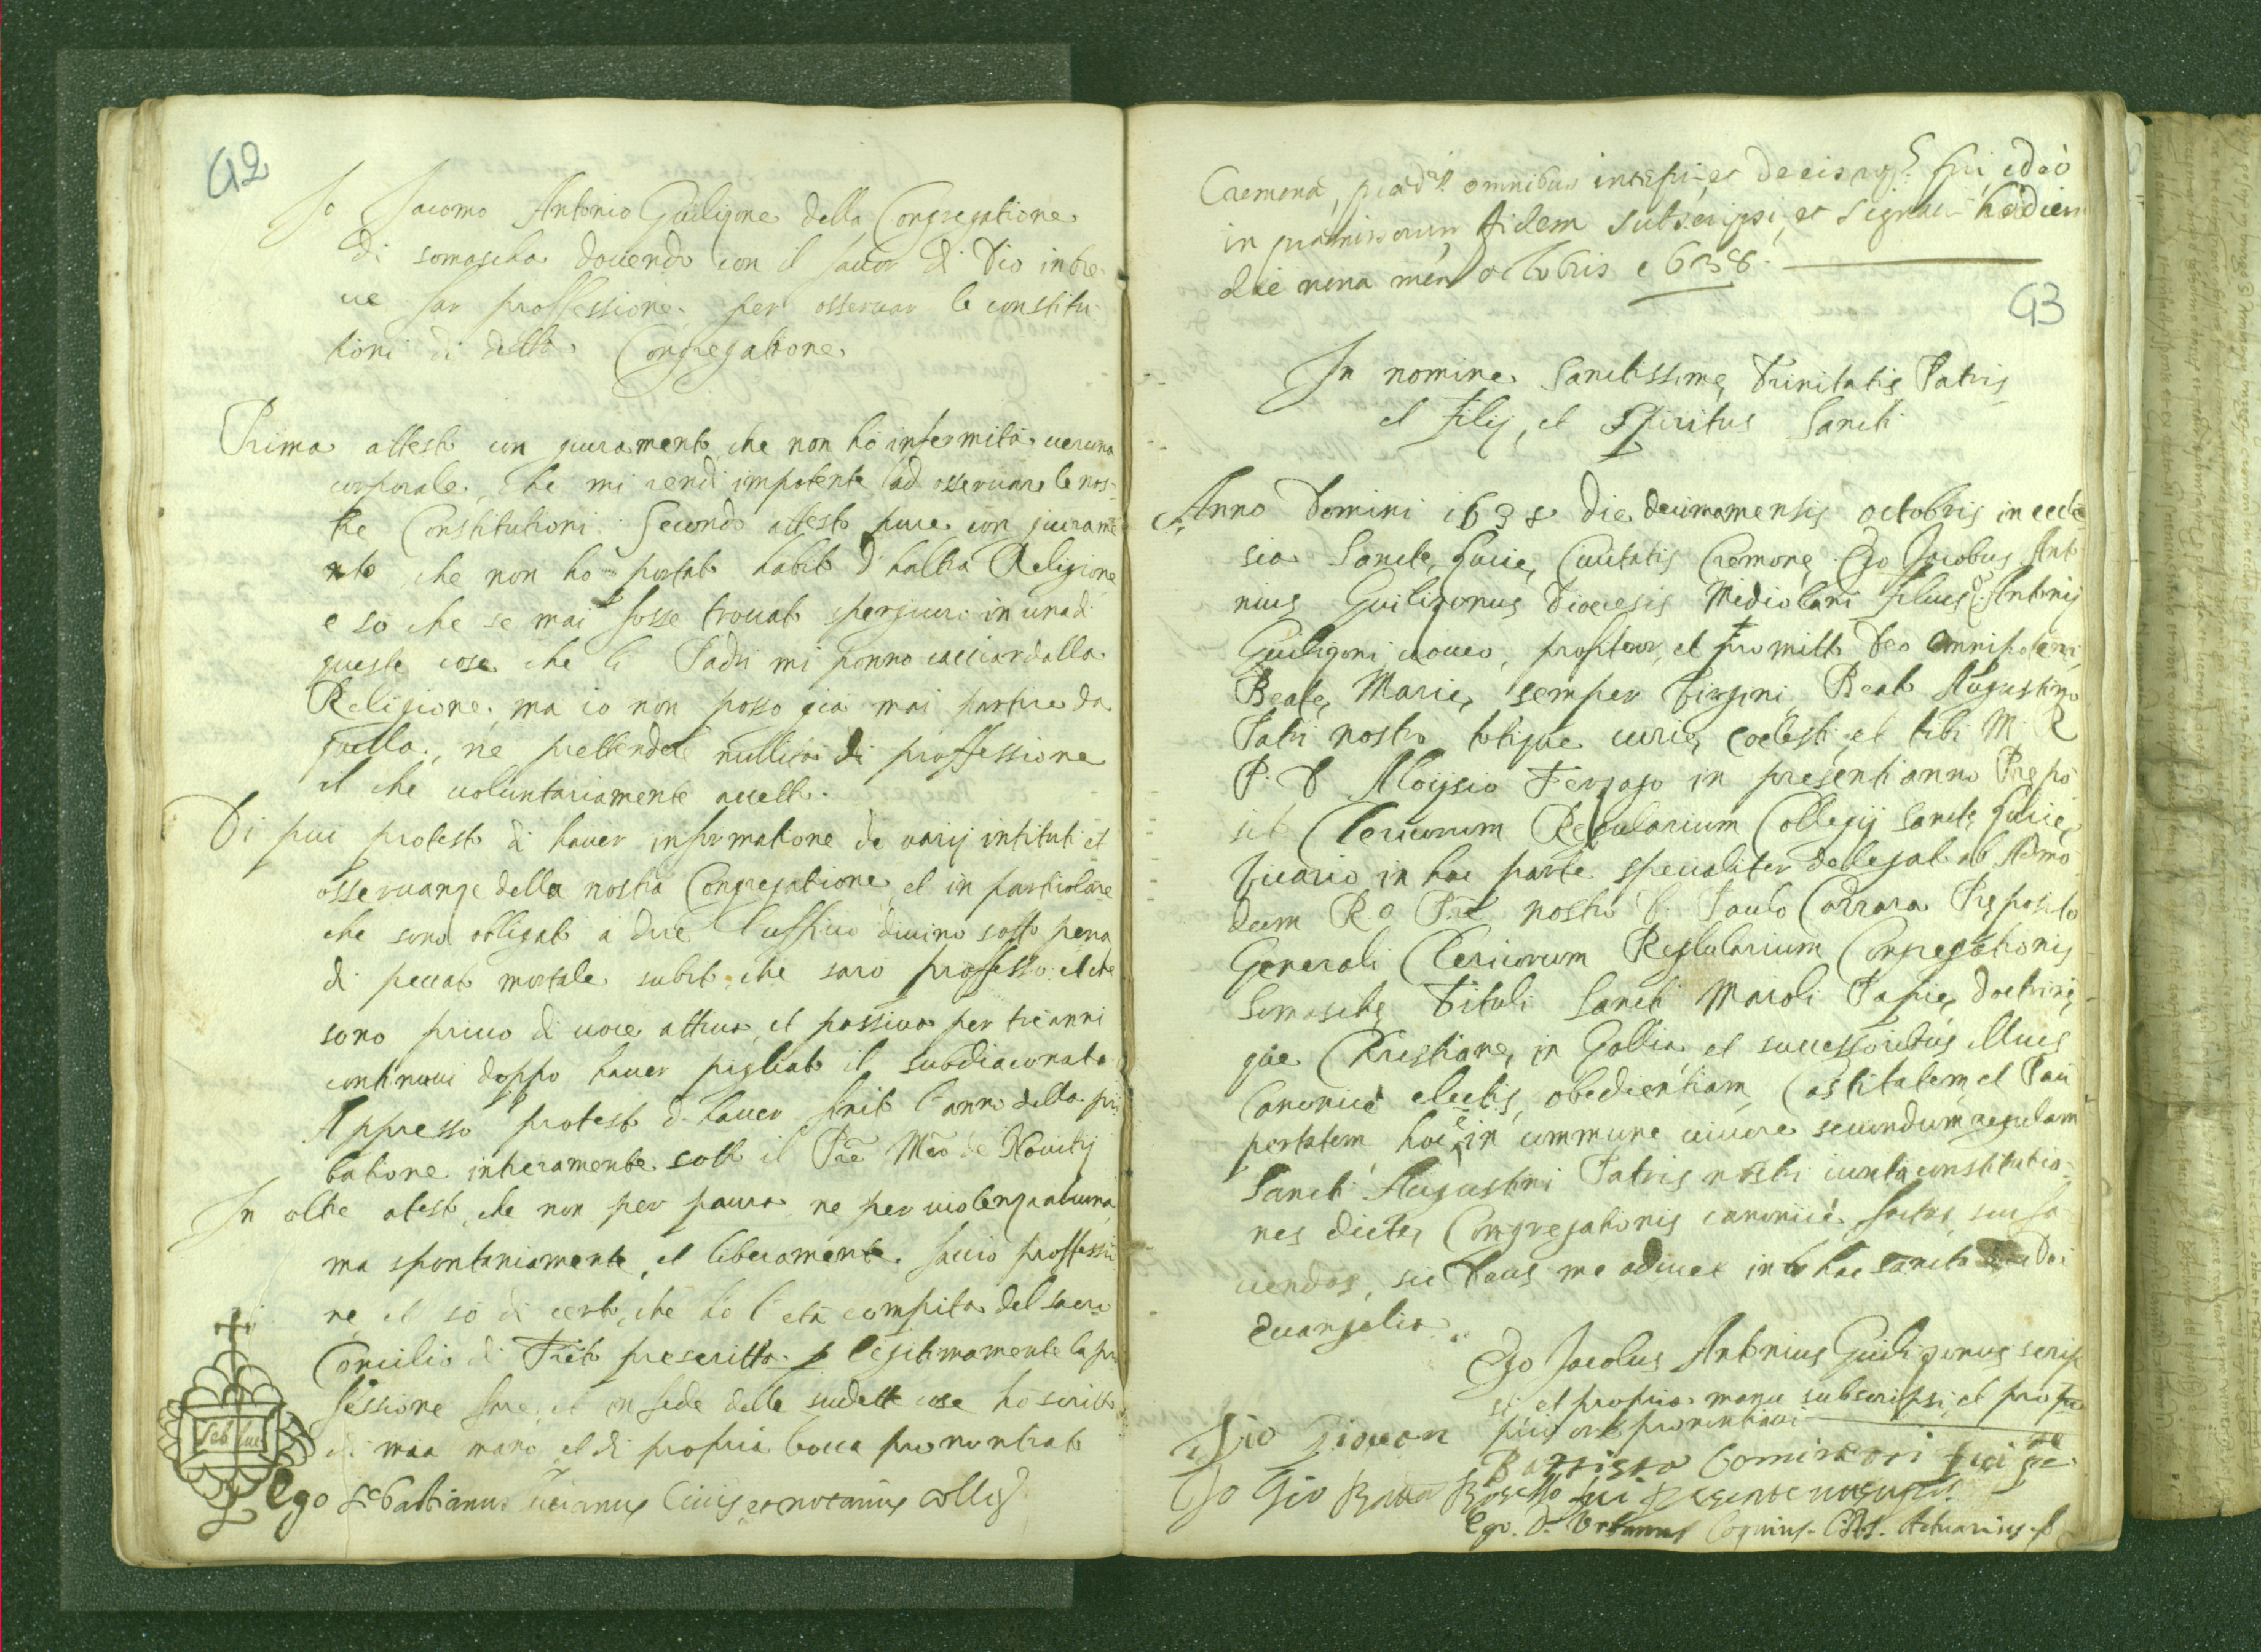 92
Io Iacomo Antonio Guiligone della Congregatione
di somascha dovendo con il favor di Dio in bre
ue far proffessione per osseruar le constitu
tioni di detta Congregatione
Prima attesto con giuramento che non ho infermità ueruna
corporale, che mi rendi impotente ad osseruare le nos-
tre Constitutioni. Secondo attesto pure con giurame
nto che non ho portato habito d'haltra Religione
e sò che se mai fosse trouato sperjiuro in una di
queste cose che li Padri mi ponno cacciar dalla
Religione, ma io non posso gia mai partire da
quella, ne prettendere nullità di proffessione
il che uoluntariamente accetto.
Di piu protesto di hauer informatione de varij intituti et
osseruanze della nostra Congregatione, et in particolare
che sono obligato a dire l'uffitio diuino sotto pena
di peccato mortale subito che sarò professo et che
sono priuo di uoce attiua, et passiua per tre anni
continoui doppo hauer pigliato il subdiaconato
Appresso protesto d'hauer finito l'anno della pro
batione intieramente sotto il Pre Mro de Nouitij
In oltre atesto, che non per paura ne per uiolenza alcuna
ma spontaniamente, et liberamente faccio proffessio
ne, et sò di certo, che ho l'età compita del sacro
Concilio di Treto prescritta p legitimamente la pro
fessione fare, et in fede delle sudette cose hò scritto
di mia mano, et di propria bocca pronontiato
Seb Luc
Ego Sebastianus Lucianus Ciuis, et notarius Collegij
Cremonae, praedis omnibus interfui, et de eis rog. fui, ideò
in praemissorum fidem subscripsi, et signaui hodiern
die nona mens octobris 1638.
93
In nomine Sanctissime Trinitatis Patris
et Filij, et Spiritus Sancti
Anno Domini 1638 die decima mensis octobris in eccle
sia Sancte Lucie Ciuitatis Cremone Ego Jacobus Anto
nius Guiligonus Diocesis Mediolani filius q. Antonij
Guiligoni uoueo, profiteor, et promitto Deo Omnipotenti,
Beate Marie semper Virgini, Beato Augustino
Patri nostro totique curie coelesti, et tibi M. R
P. D Aloijsio Terzago in presenti anno Prepo
sito Clericorum Regularium Collegij Sancte Lucie
Vicario in hac parte specialiter dellegato ab Admo
dum Rdo Pre nostro D. Paulo Carrara Preposito
Generali Clericorum Regularium Congregationis
Somasche Tituli Sancti Maioli Papie, doctrine
que Christiane in Gallia et successoribus illius
Canonicè electis, obedientiam, Castitatem, et Pau
pertatem hoc e in commune uiuere secundum regulam
Sancti Augustini Patris nostri iuxta constitutio-
nes dicte Congregationis canonicè factas siue fa
ciendas, sic Deus me adiuet in hac sancta Dei
euangelia.
Ego Jacobus Antonius Guiligonus scrip
si et propria manu subscripsi, et propr
prio ore prononciaui
Io Giouan Battista Cominatori fui pte
Io Gio Batta Rosetto fui presente ut supra
Ego D. Urbanus Coquius C.R.S. Actuarius. s